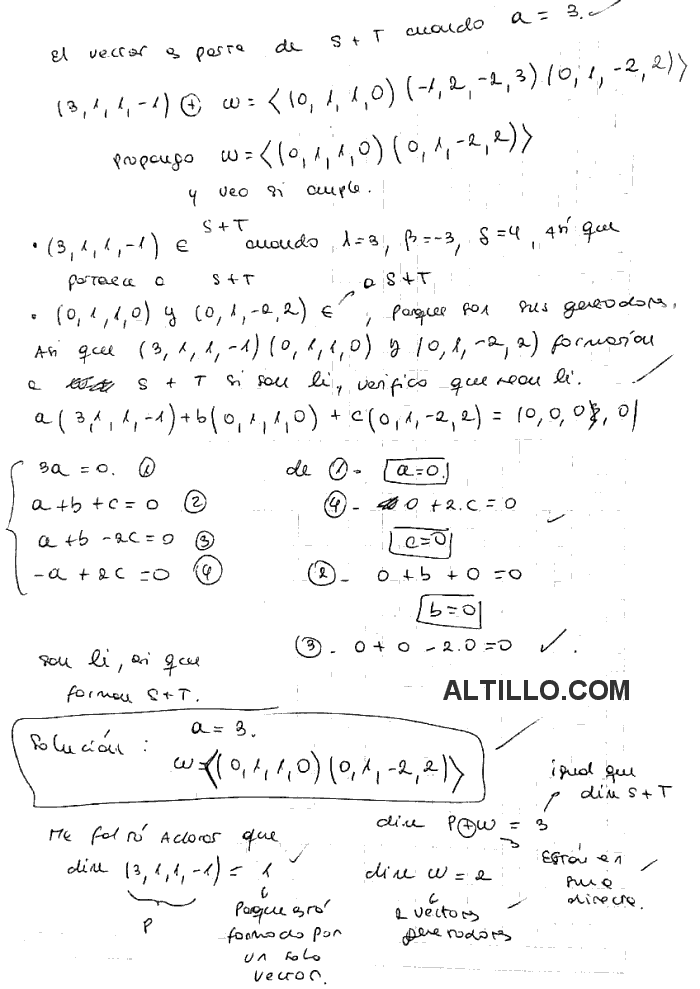 El vector es parte de S + T cuando a = 3. ✓
(3,1,1,-1) ⊕ W = ⟨(0,1,1,0) (-1,2,-2,3) (0,1,-2,2)⟩
propongo W = ⟨(0,1,1,0) (0,1,-2,2)⟩
y veo si cumple.
• (3,1,1,-1) ∈ S+T cuando λ=3, β=-3, δ=4, así que
pertenece a S+T
• (0,1,1,0) y (0,1,-2,2) ∈ a S+T, porque son sus generadores.
Así que (3,1,1,-1) (0,1,1,0) y (0,1,-2,2) formarían
a S + T si son li, verifico que sean li.
a(3,1,1,-1)+b(0,1,1,0) + c(0,1,-2,2) = (0,0,0,0)
3a = 0. ① de ①- a=0.
a+b+c = 0 ② ④- 0+2.c=0
a+b-2c=0 ③ c=0
-a+2c=0 ④ ②- 0+b+0=0
b=0
③- 0+0-2.0=0 ✓.
son li, así que
forman S+T.
ALTILLO.COM
Solución: a = 3.
W=⟨(0,1,1,0) (0,1,-2,2)⟩
igual que
dim S+T
Me faltó aclarar que dim P⊕W = 3
dim (3,1,1,-1) = 1 ✓ dim W = 2
Están en
suma
directa.
P
Porque está
formado por
un solo
vector.
2 vectores
generadores